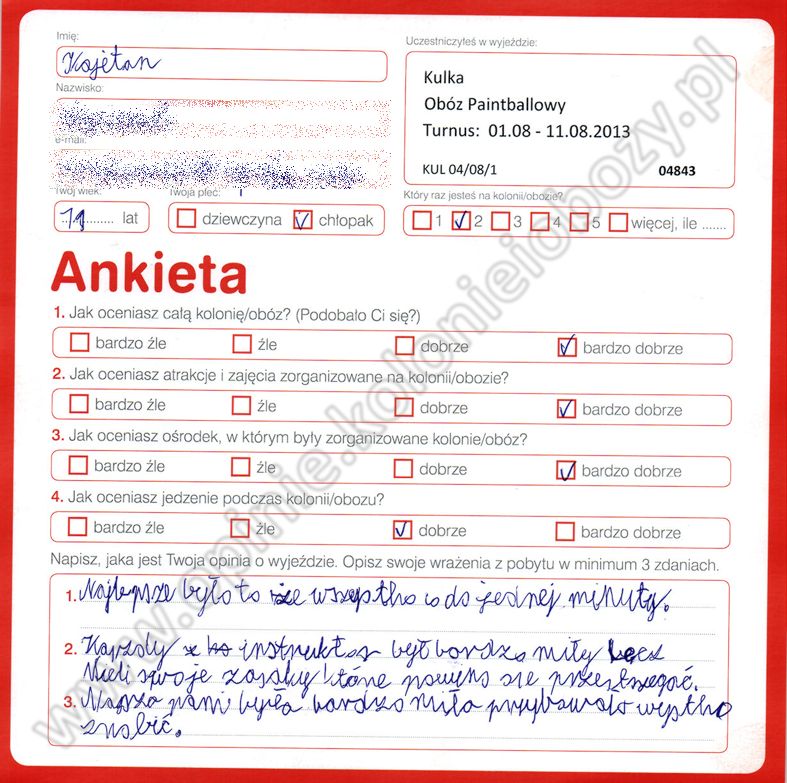 Imię:
Kajetan
Uczestniczyłeś w wyjeździe:
Nazwisko:
Kulka
Obóz Paintballowy
Turnus: 01.08 - 11.08.2013
e-mail:
KUL 04/08/1 04843
Twój wiek: Twoja płeć: Który raz jesteś na kolonii/obozie?
11 lat dziewczyna chłopak 1 2 3 4 5 więcej, ile .......
Ankieta
1. Jak oceniasz całą kolonię/obóz? (Podobało Ci się?)
bardzo źle źle dobrze bardzo dobrze
2. Jak oceniasz atrakcje i zajęcia zorganizowane na kolonii/obozie?
bardzo źle źle dobrze bardzo dobrze
3. Jak oceniasz ośrodek, w którym były zorganizowane kolonie/obóz?
bardzo źle źle dobrze bardzo dobrze
4. Jak oceniasz jedzenie podczas kolonii/obozu?
bardzo źle źle dobrze bardzo dobrze
Napisz, jaka jest Twoja opinia o wyjeździe. Opisz swoje wrażenia z pobytu w minimum 3 zdaniach.
1. Najlepsze było to że co do jednej minuty.
2. instruktor był bardzo miły lecz
swoje się
3. Nasza pani była bardzo miła
www.opinie.kolonieiobozy.pl